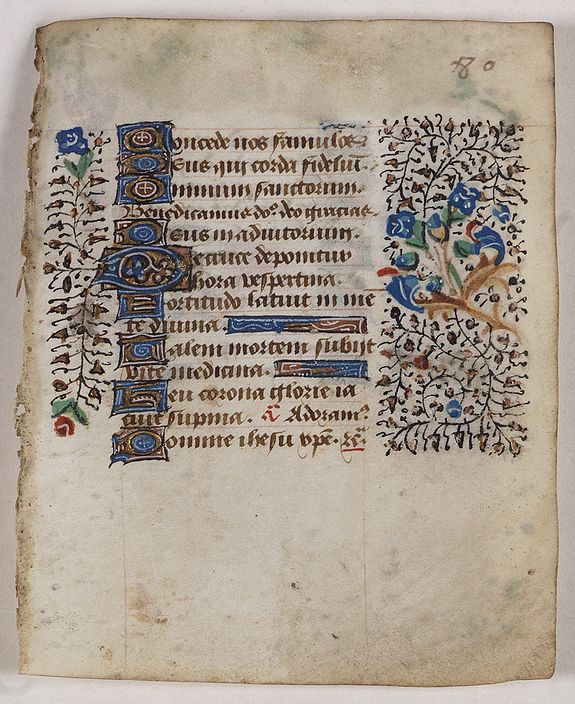 80
Concede nos famulos
Deus qui corda fideliũ
Omnium sanctorum.
Benedicamus do° deo gracias.
Deus in adiutorium.
De cruce deponitur
hora vespertina.
Fortitudo latuit in me
te diuina.
Talem mortem subijt
vite medicina.
Heu corona glorie ia
cuit supina. ℟ Adoram⁹
Domine ihesu xp̃e. ⁊c̃.